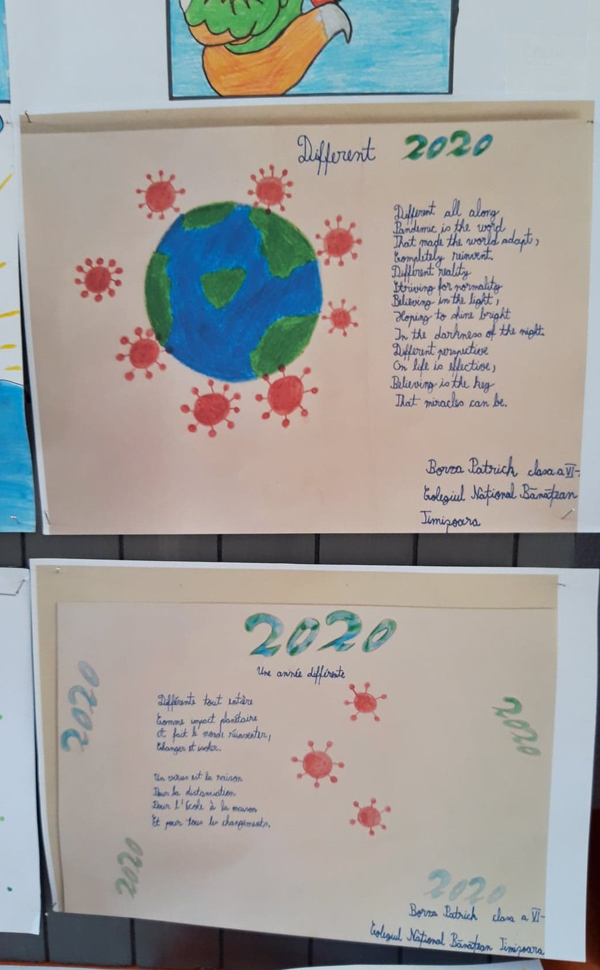 Different 2020
Different all along
Pandemic is the word
That made the world adapt,
Completely reinvent.
Different reality
Striving for normality
Believing in the light,
Hoping to shine bright
In the darkness of the night.
Different perspective
On life is effective,
Believing is the key
That miracles can be.
Borza Patrick clasa a VI-
Colegiul Național Bănățean
Timișoara
2020
Une année différente
Différente tout entière
Comme impact planétaire
Et fait le monde réinventer,
Changer et isoler.
Un virus est la raison
Pour la distanciation
Pour l'école à la maison
Et pour tous les changements.
2020
2020
2020
2020
Borza Patrick clasa a VI-
Colegiul Național Bănățean Timișoara